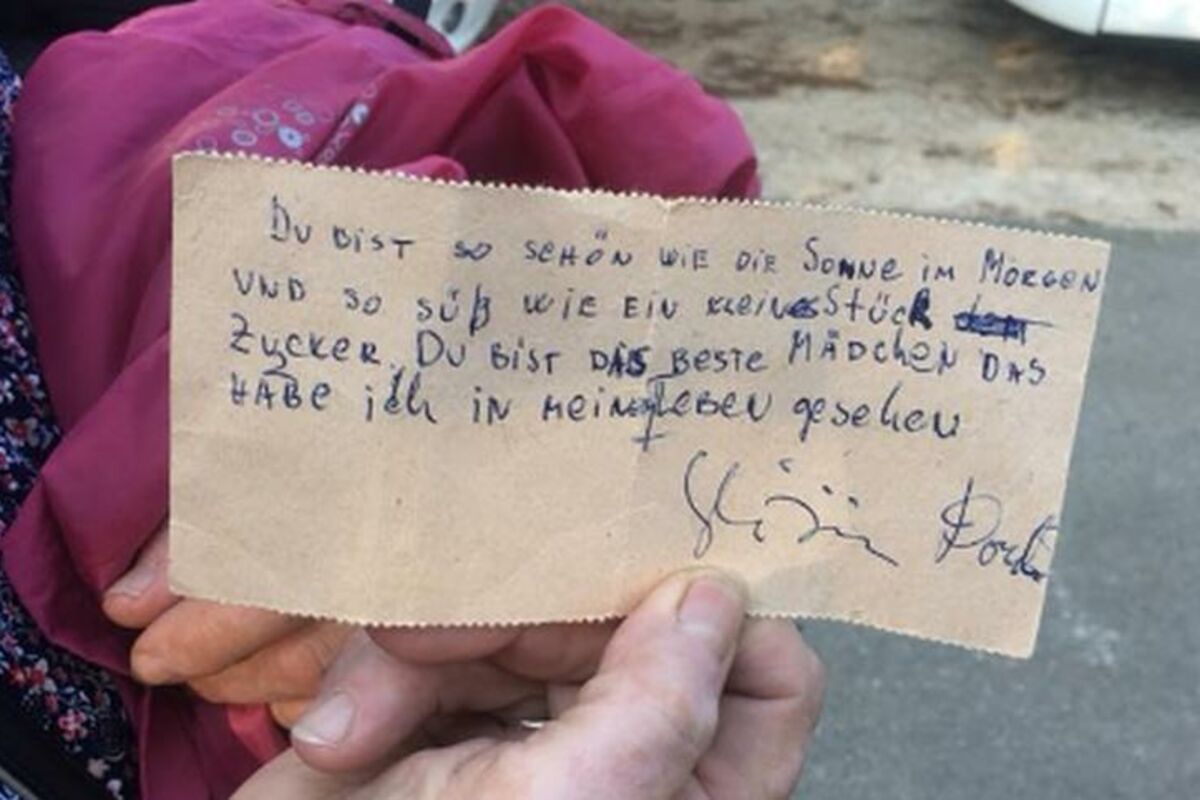 Du bist so schön wie die Sonne im Morgen
und so süß wie ein klein Stück
Zucker. Du bist das beste Mädchen das
habe ich in mein Leben gesehen